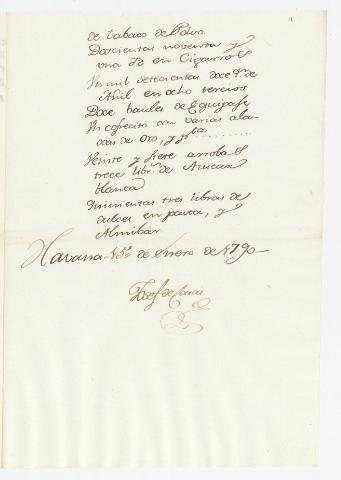 de tabaco de Polvo
Doscientas noventa y
una @ en Cigarros
Un mil setecientas doce @ de
Añil en ocho tercios
Doce baules de Equipaje
Un cofrecito con varias ala-
jas de Oro, y pta
Veinte y siete arrobas
trece libs. de Azucar
blanca
Quinientas tres libras de
dulces en pasta, y
Almibar
Havana 15 de Enero de 1790
Josef de